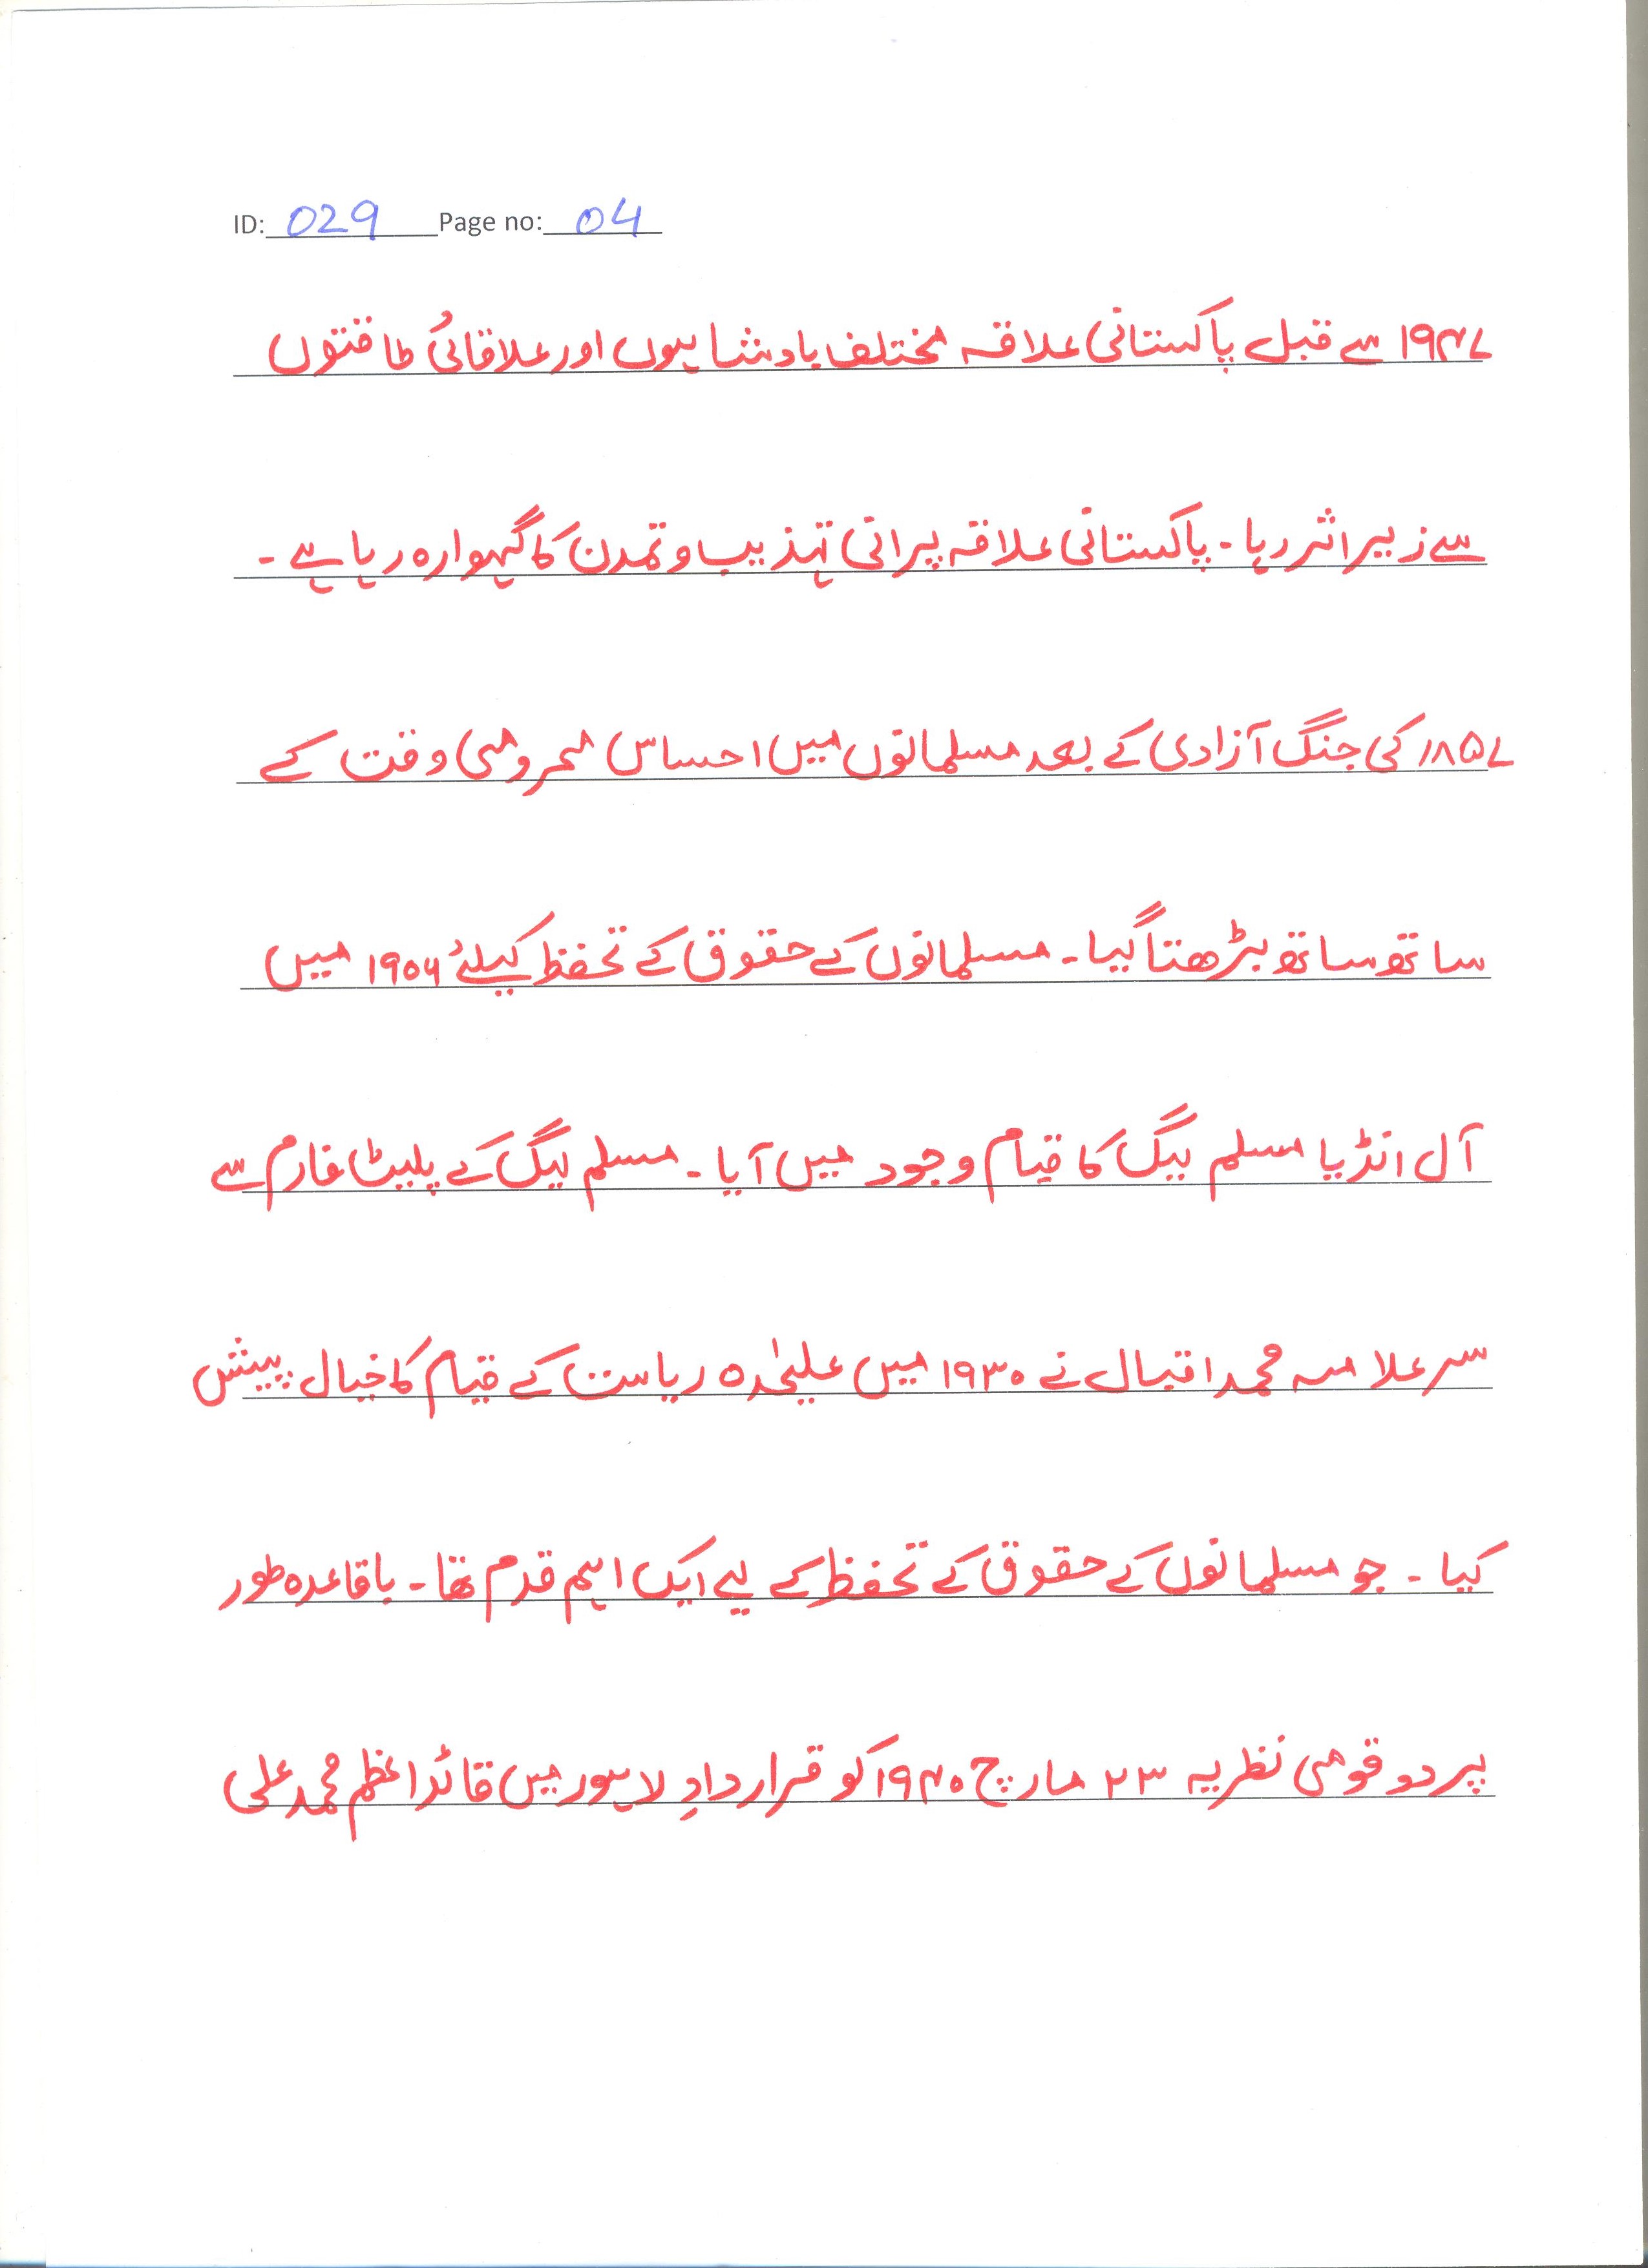 ID: 029 Page no: 04
۱۹۴۷ سے قبل پاکستانی علاقہ مختلف بادشاہوں اور علاقائی طاقتوں
سے زیر اثر رہا۔ پاکستانی علاقہ پرانی تہذیب و تمدن کا گہوارہ رہا ہے۔
۱۸۵۷ کی جنگ آزادی کے بعد مسلمانوں میں احساس محرومی وقت کے
ساتھ ساتھ بڑھتا گیا۔ مسلمانوں کے حقوق کے تحفظ کیلئے ۱۹۰۶ میں
آل انڈیا مسلم لیگ کا قیام وجود میں آیا۔ مسلم لیگ کے پلیٹ فارم سے
سر علامہ محمد اقبال نے ۱۹۳۰ میں علیٰحدہ ریاست کے قیام کا خیال پیش
کیا۔ جو مسلمانوں کے حقوق کے تحفظ کے لیے ایک اہم قدم تھا۔ باقاعدہ طور
پر دو قومی نظریہ ۲۳ مارچ ۱۹۴۰ کو قراردادِ لاہور میں قائداعظم محمد علی